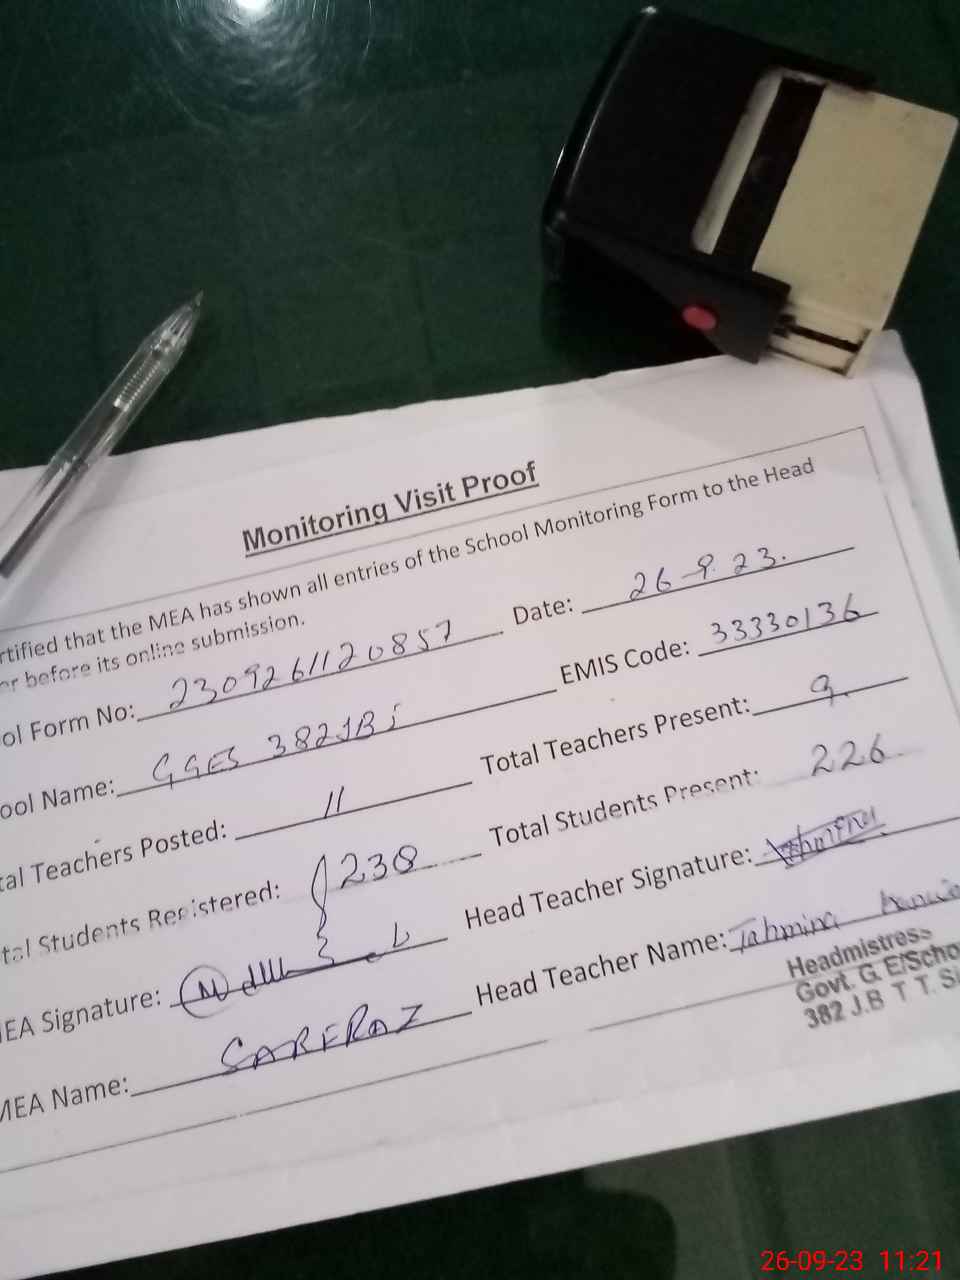 Monitoring Visit Proof
rtified that the MEA has shown all entries of the School Monitoring Form to the Head
er before its online submission.
ol Form No: 2309261120857 Date: 26-9.23.
ool Name: GGES 382JB EMIS Code: 33330136
tal Teachers Posted: 11 Total Teachers Present: 9.
tal Students Registered: 238 Total Students Present: 226
MEA Signature: Head Teacher Signature: Tahmina
MEA Name: SARFRAZ Head Teacher Name: Tahmina
Headmistress
Govt. G. E/Scho
382 J.B T T. Si
26-09-23 11:21